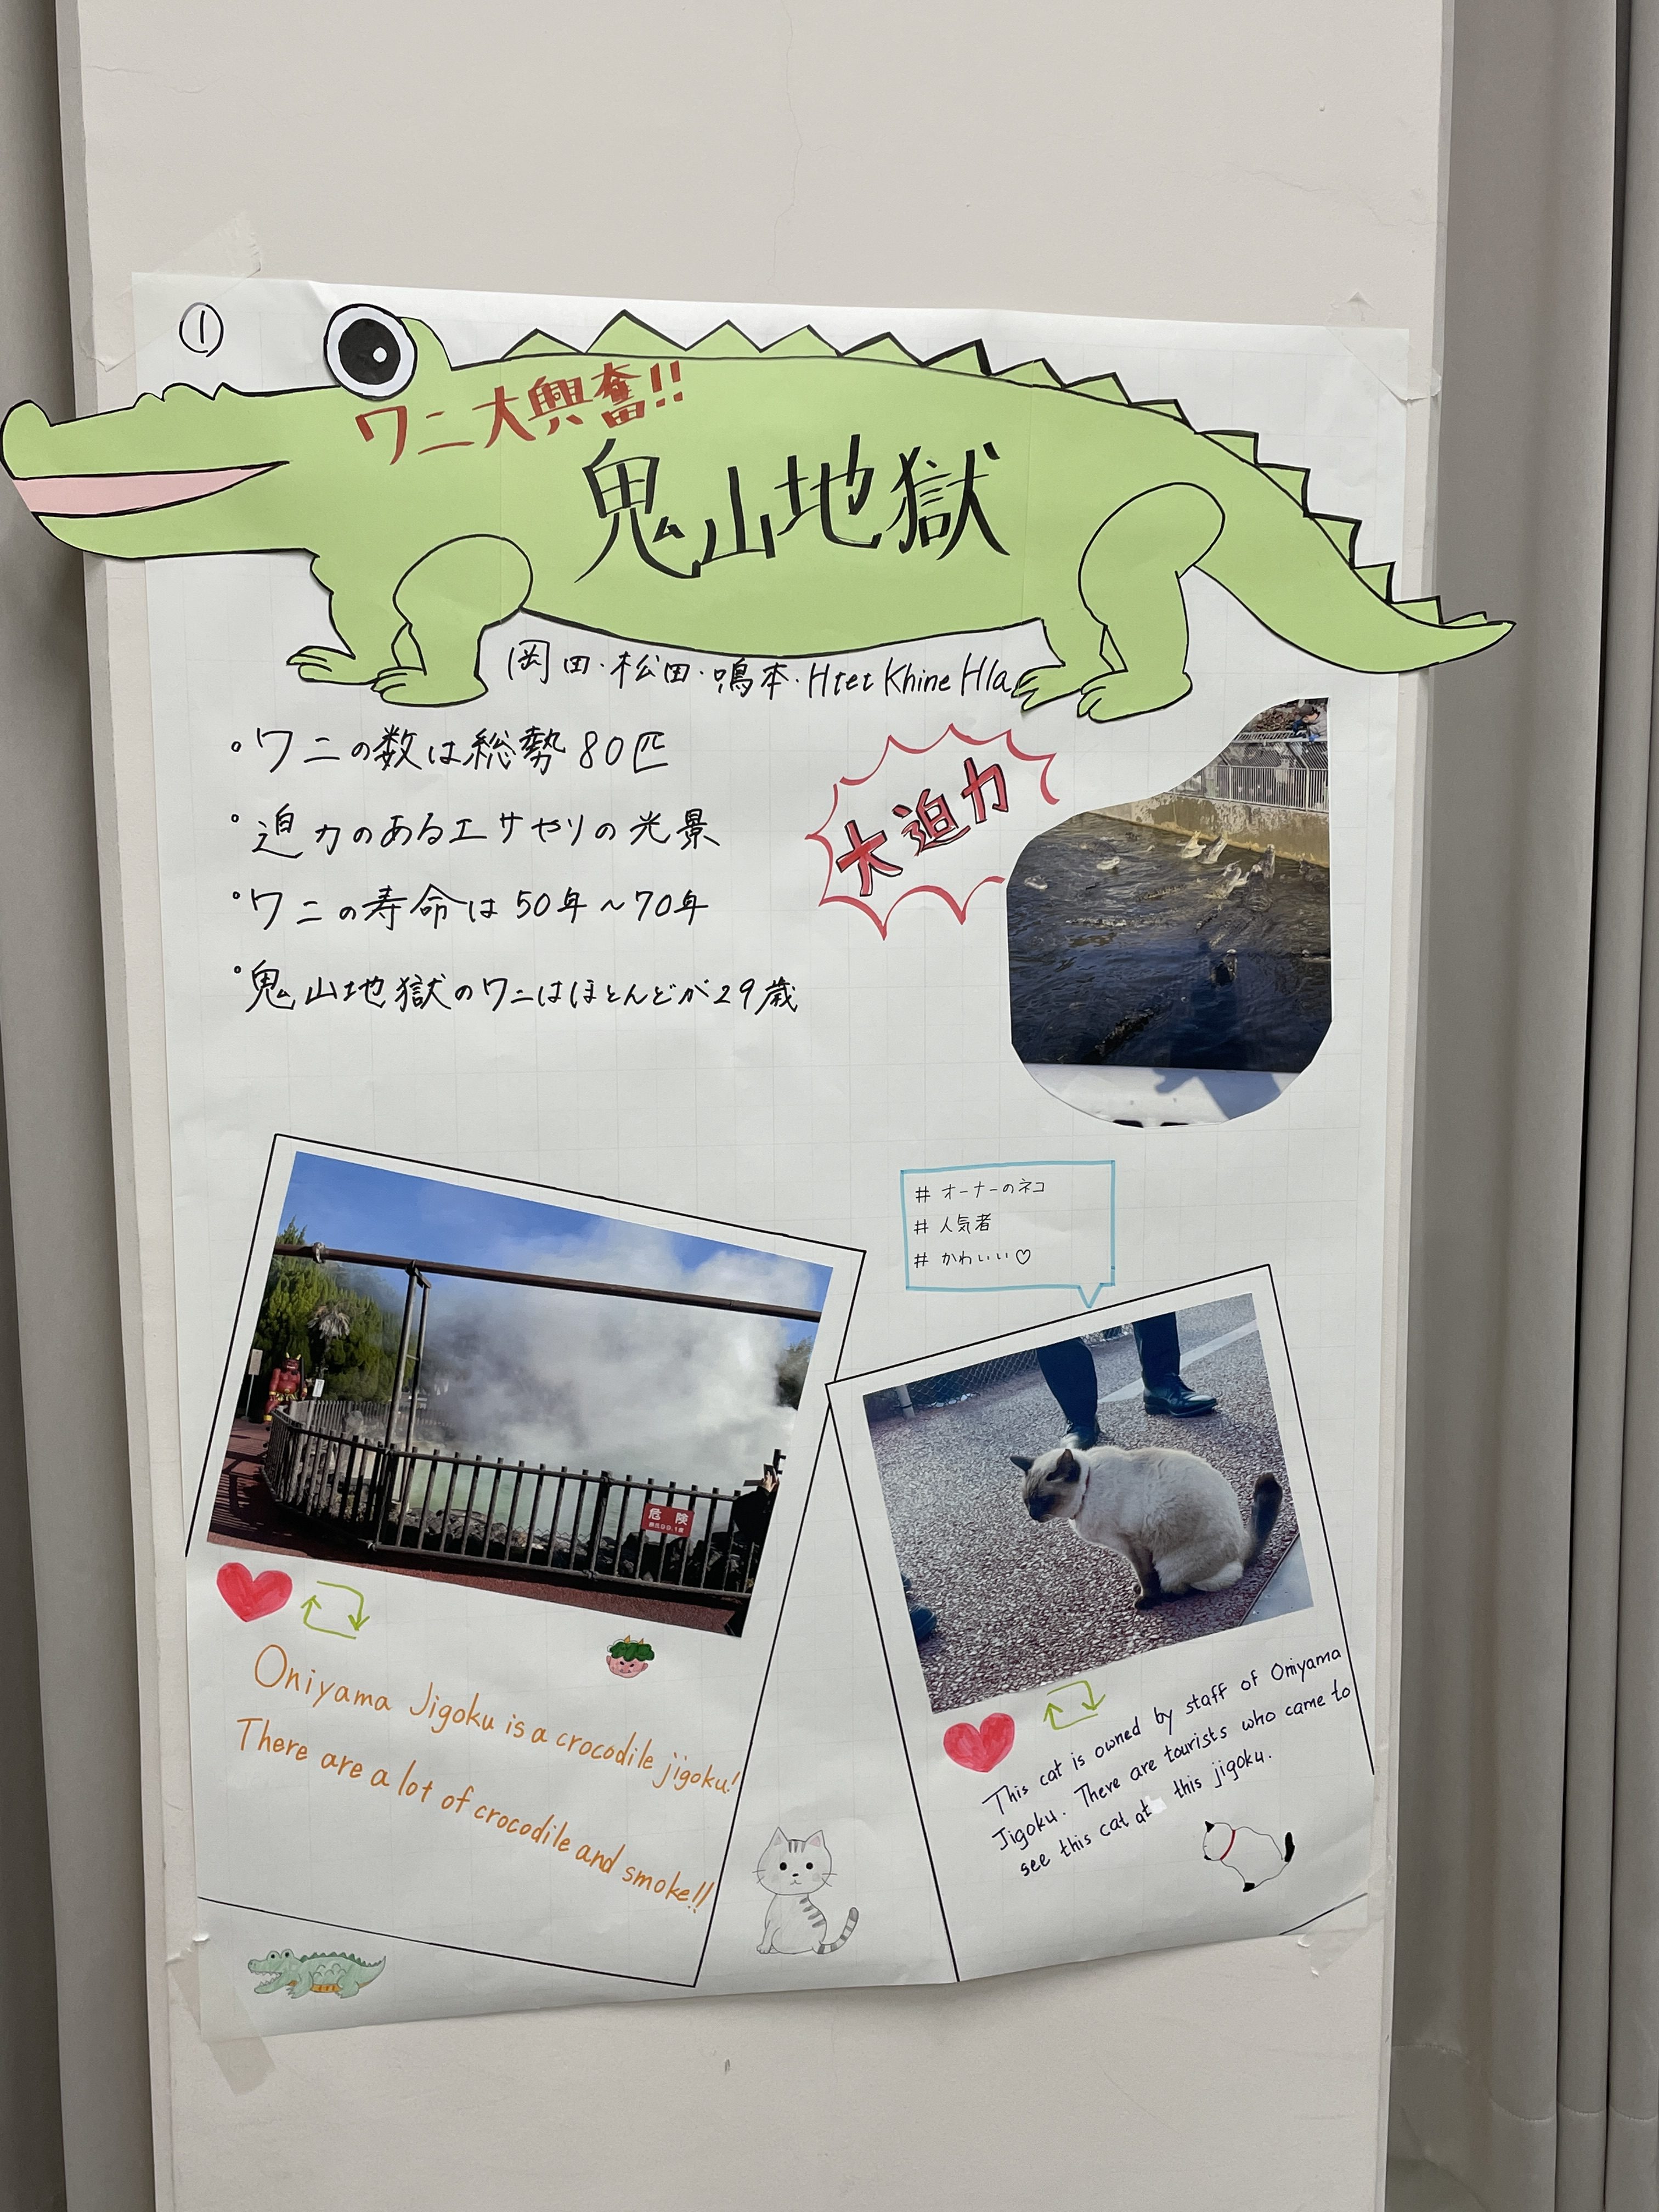 ①
ワニ大興奮!!
鬼山地獄
岡田・松田・鳴本・Htet Khine Hla
・ワニの数は総勢80匹
・迫力のあるエサやりの光景
・ワニの寿命は50年～70年
・鬼山地獄のワニはほとんどが29歳
大迫力
# オーナーのネコ
# 人気者
# かわいい♡
危険
Oniyama Jigoku is a crocodile jigoku!
There are a lot of crocodile and smoke!!
This cat is owned by staff of Oniyama
Jigoku. There are tourists who came to
see this cat at this jigoku.